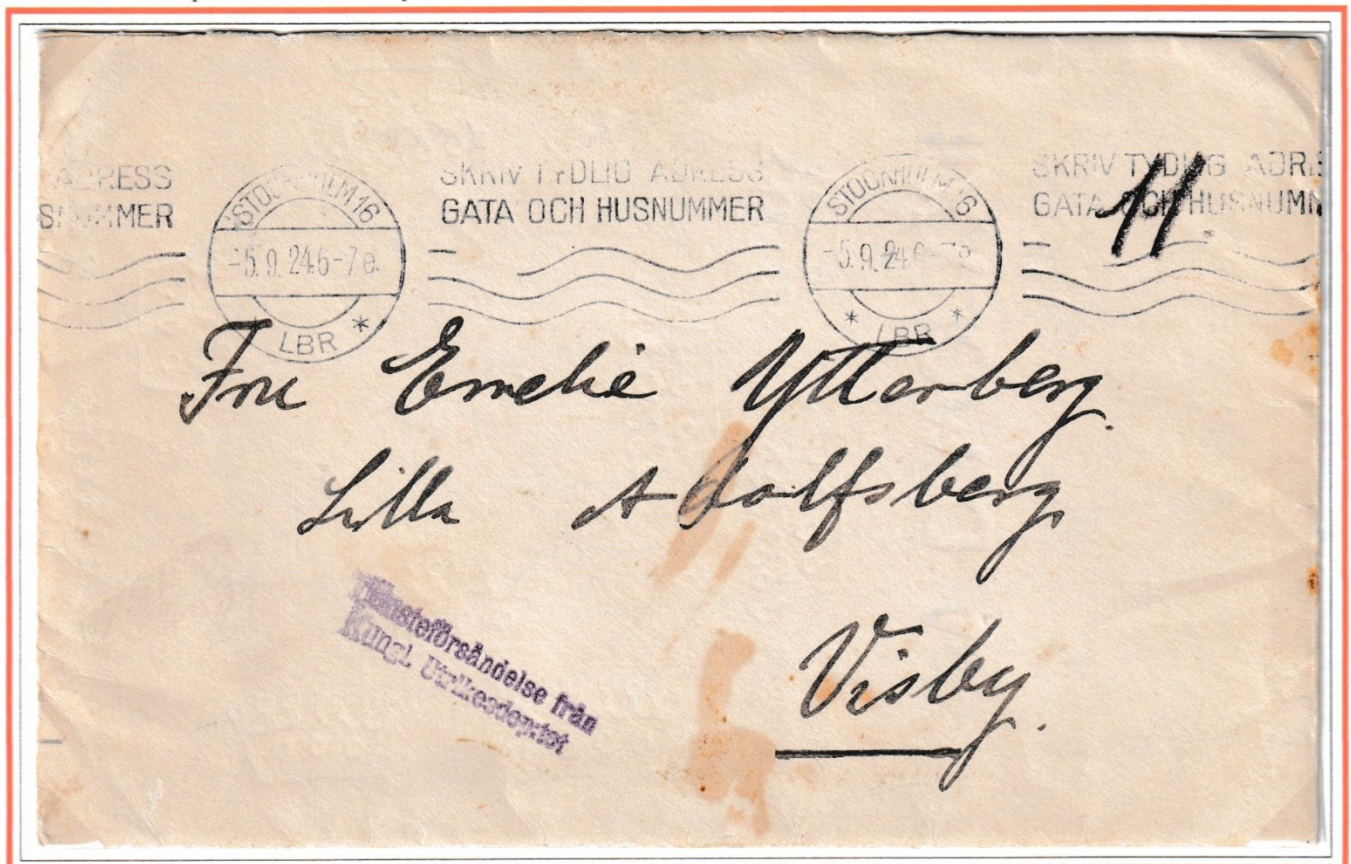 ADRESS
SNUMMER
STOCKHOLM 16
-5.9.24 6-7 e.
* LBR *
SKRIV TYDLIG ADRESS
GATA OCH HUSNUMMER
STOCKHOLM 16
-5.9.24 6-7 e
* LBR *
SKRIV TYDLIG ADRE
GATA OCH HUSNUMM
11
Fru Emelie Ytterberg.
Lilla Adolfsberg,
Visby.
Tjänsteförsändelse från
Kungl. Utrikesdep:tet